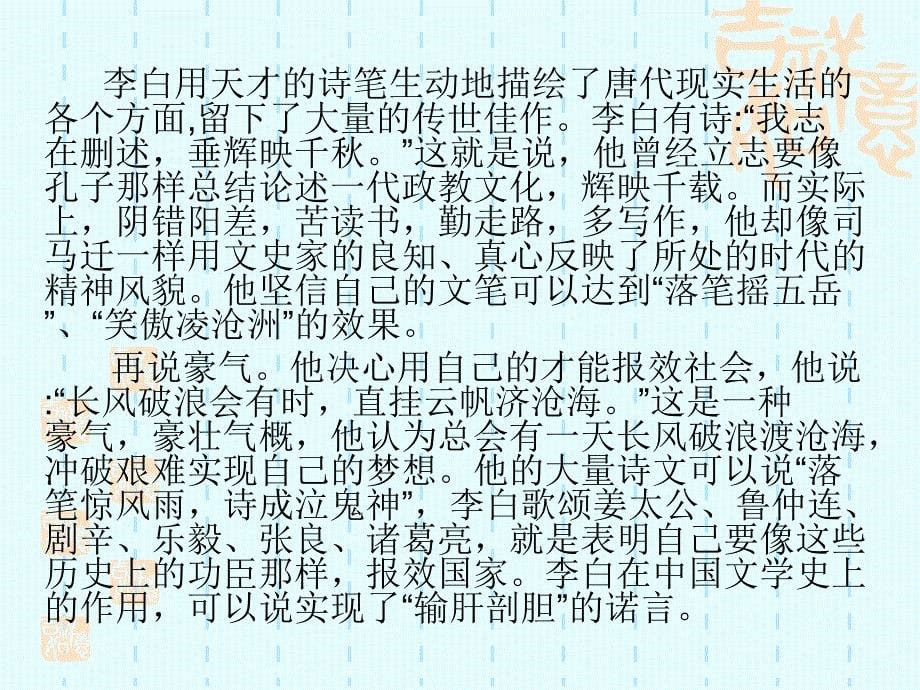 李白用天才的诗笔生动地描绘了唐代现实生活的
各个方面,留下了大量的传世佳作。李白有诗:“我志
在删述，垂辉映千秋。”这就是说，他曾经立志要像
孔子那样总结论述一代政教文化，辉映千载。而实际
上，阴错阳差，苦读书，勤走路，多写作，他却像司
马迁一样用文史家的良知、真心反映了所处的时代的
精神风貌。他坚信自己的文笔可以达到“落笔摇五岳
”、“笑傲凌沧洲”的效果。
再说豪气。他决心用自己的才能报效社会，他说
:“长风破浪会有时，直挂云帆济沧海。”这是一种
豪气，豪壮气概，他认为总会有一天长风破浪渡沧海，
冲破艰难实现自己的梦想。他的大量诗文可以说“落
笔惊风雨，诗成泣鬼神”，李白歌颂姜太公、鲁仲连、
剧辛、乐毅、张良、诸葛亮，就是表明自己要像这些
历史上的功臣那样，报效国家。李白在中国文学史上
的作用，可以说实现了“输肝剖胆”的诺言。